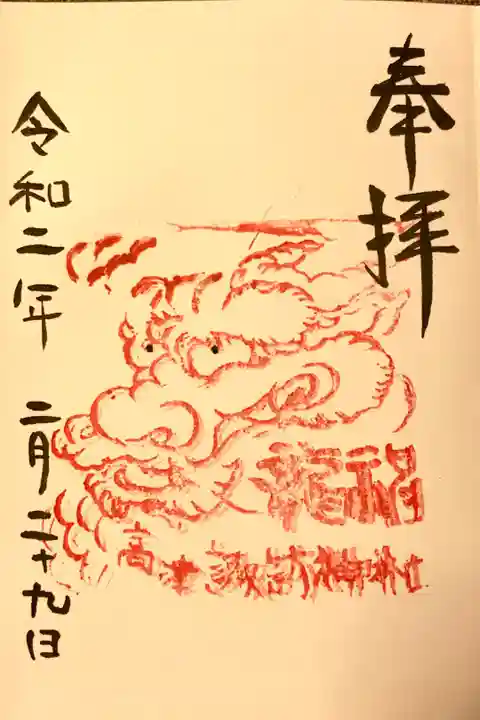 奉拝
福龍
高木諏訪神社
令和二年 二月二十九日